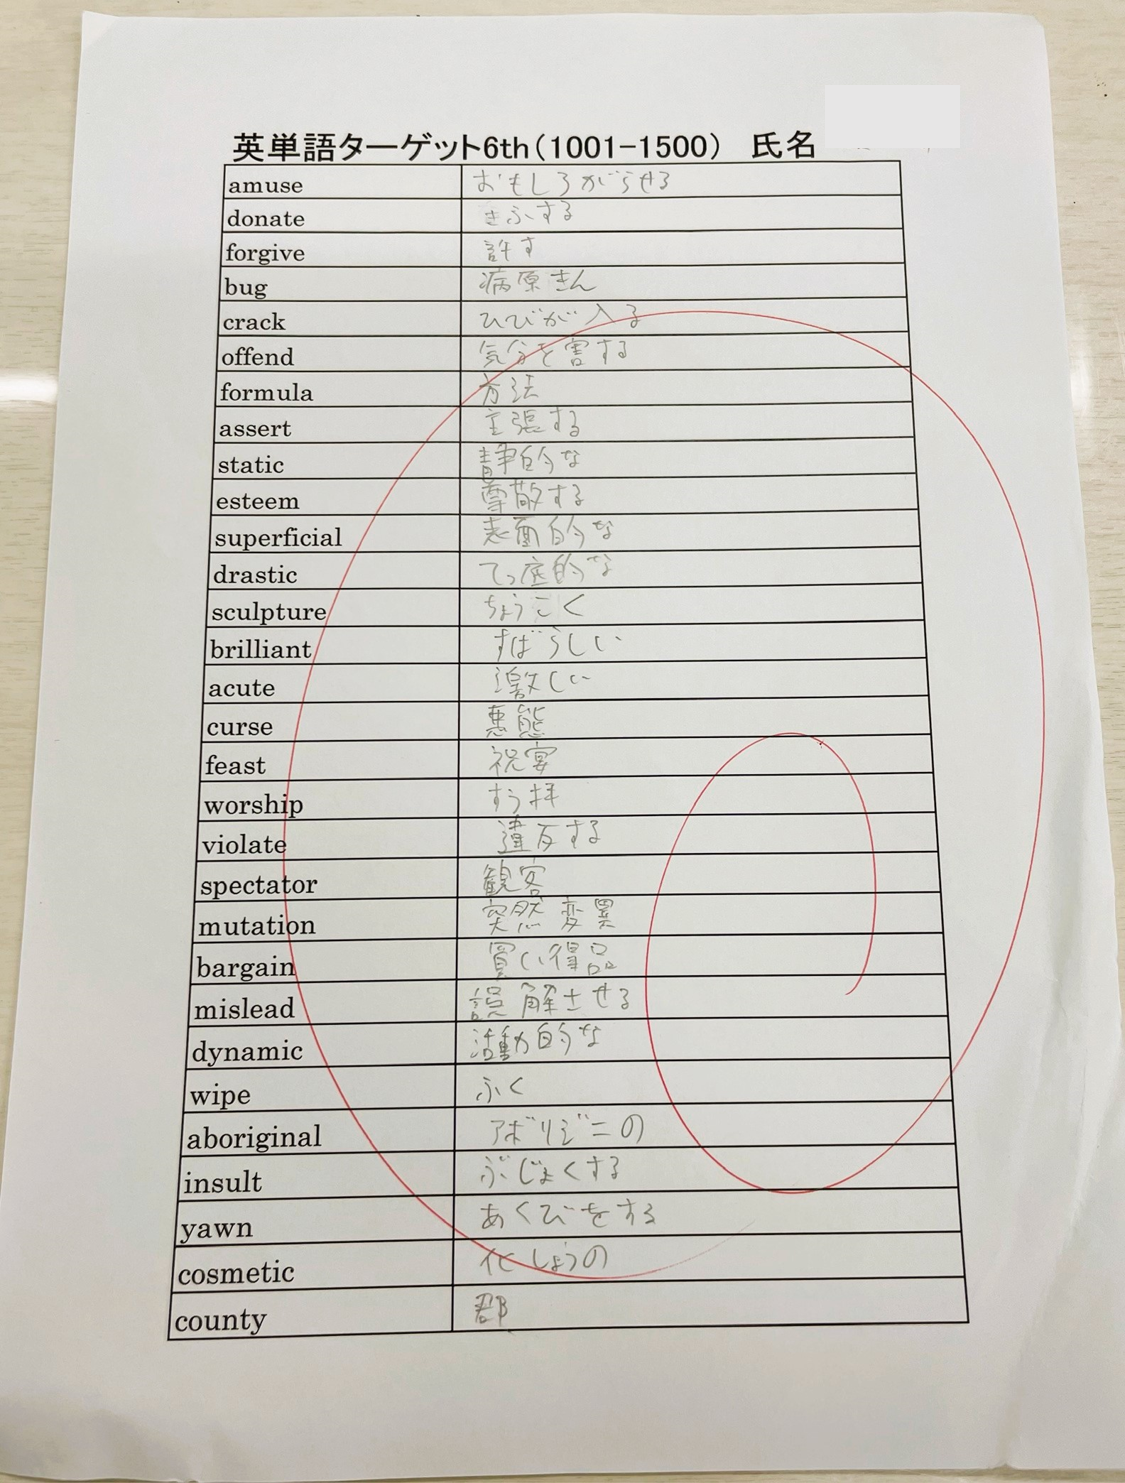 英単語ターゲット6th(1001-1500) 氏名
amuse おもしろがらせる
donate きふする
forgive 許す
bug 病原きん
crack ひびが入る
offend 気分を害する
formula 方法
assert 主張する
static 静的な
esteem 尊敬する
superficial 表面的な
drastic てっ底的な
sculpture ちょうこく
brilliant すばらしい
acute 激しい
curse 悪態
feast 祝宴
worship すう拝
violate 違反する
spectator 観客
mutation 突然変異
bargain 買い得品
mislead 誤解させる
dynamic 活動的な
wipe ふく
aboriginal アボリジニの
insult ぶじょくする
yawn あくびをする
cosmetic 化しょうの
county 郡